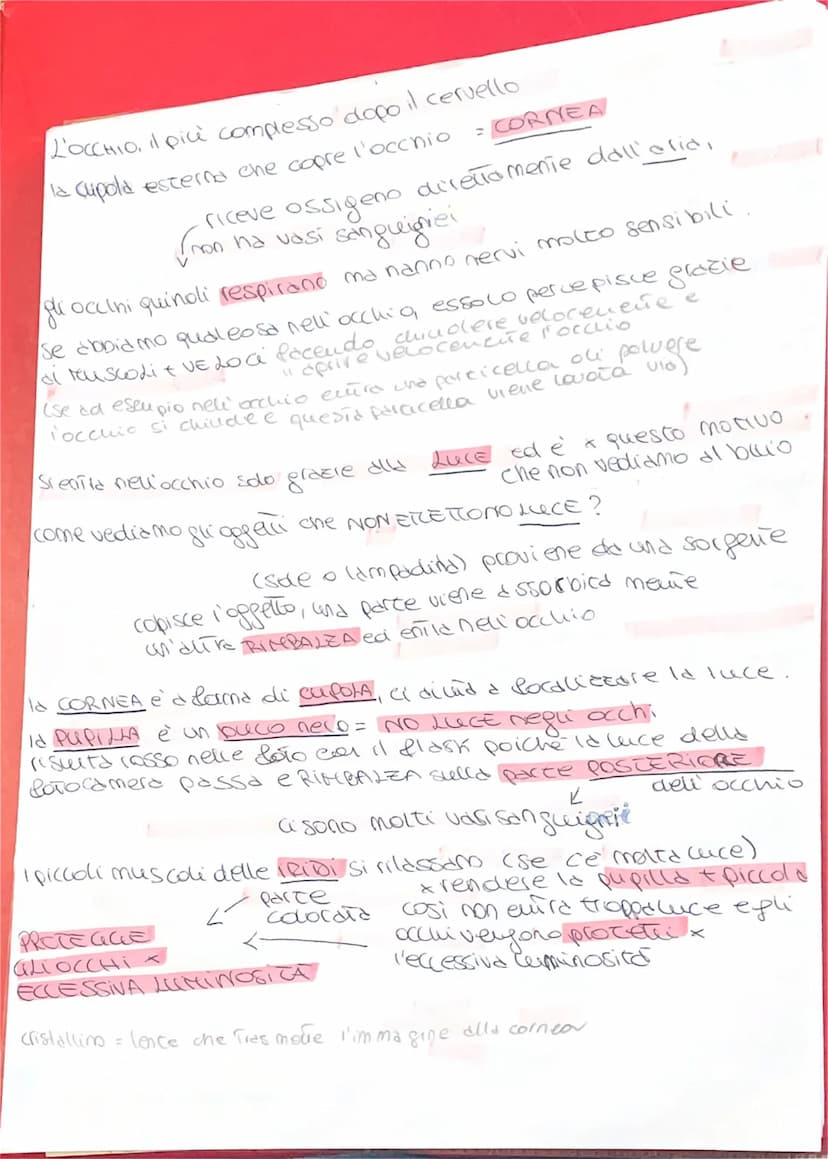 L'OCCHIO, il più complesso dopo il cervello
la cupola esterna che copre l'occhio = CORNEA
riceve ossigeno direttamente dall'aria,
non ha vasi sanguigniei
gli occhi quindi respirano ma hanno nervi molto sensibili.
Se abbiamo qualcosa nell'occhio, esso lo percepisce grazie
ai MUSCOLI + VELOCI facendo chiudere velocemente e
aprire velocemente l'occhio
(se ad esempio nell'occhio entra una particella di polvere
l'occhio si chiude e questa particella viene lavata via)
Si entra nell'occhio solo grazie alla LUCE ed è x questo motivo
che non vediamo al buio
come vediamo gli oggetti che NON EMETTONO LUCE?
(sole o lampadina) proviene da una sorgente
colpisce l'oggetto, una parte viene assorbita mentre
un'altra RIMBALZA ed entra nell'occhio
la CORNEA è a forma di CUPOLA, ci aiuta a focalizzare la luce.
la PUPILLA è un buco nero = NO LUCE negli occhi
risulta rosso nelle foto con il flash poiché la luce della
fotocamera passa e RIMBALZA sulla parte POSTERIORE
dell'occhio
ci sono molti vasi sanguignii
I piccoli muscoli delle IRIDI si rilassano (se c'è molta luce)
x rendere la pupilla + piccola
parte
colorata
così non entra troppa luce e gli
occhi vengono protetti x
l'eccessiva luminosità
PROTEGGE
GLI OCCHI x
ECCESSIVA LUMINOSITÀ
cristallino = lente che trasmette l'immagine alla cornea